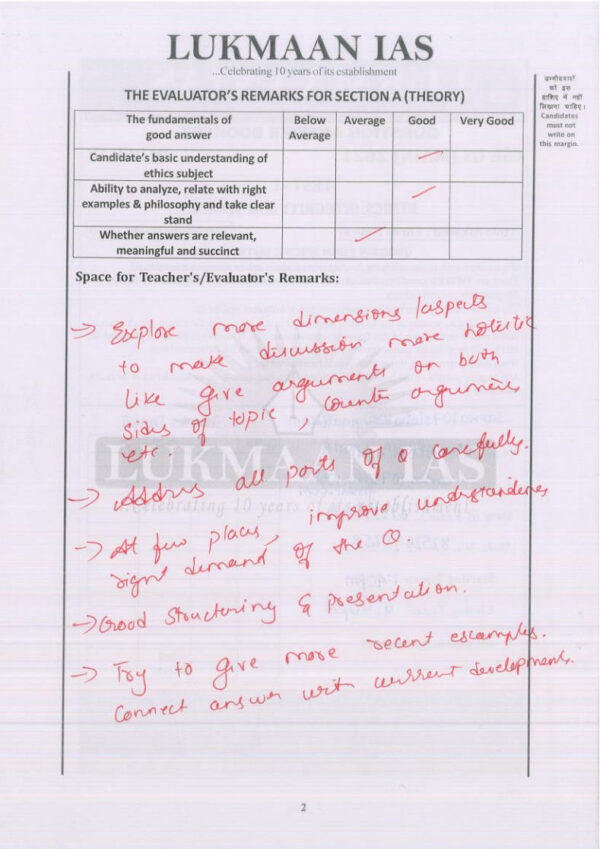 LUKMAAN IAS
...Celebrating 10 years of its establishment
उम्मीदवारों
को इस
हाशिए में नहीं
लिखना चाहिए।
Candidates
must not
write on
this margin.
THE EVALUATOR'S REMARKS FOR SECTION A (THEORY)
The fundamentals of good answer | Below Average | Average | Good | Very Good
Candidate's basic understanding of
ethics subject
Ability to analyze, relate with right
examples & philosophy and take clear
stand
Whether answers are relevant,
meaningful and succinct
Space for Teacher's/Evaluator's Remarks:
→ Explore more dimensions/aspects
to make discussion more holistic
like give arguments on both
sides of topic, counter arguments
etc.
→ Address all parts of Q carefully.
→ At few places, improve understanding
right demand of the Q.
→ Good structuring & presentation.
→ Try to give more recent examples.
Connect answer with current developments.
LUKMAAN IAS
...Celebrating 10 years of its establishment
2